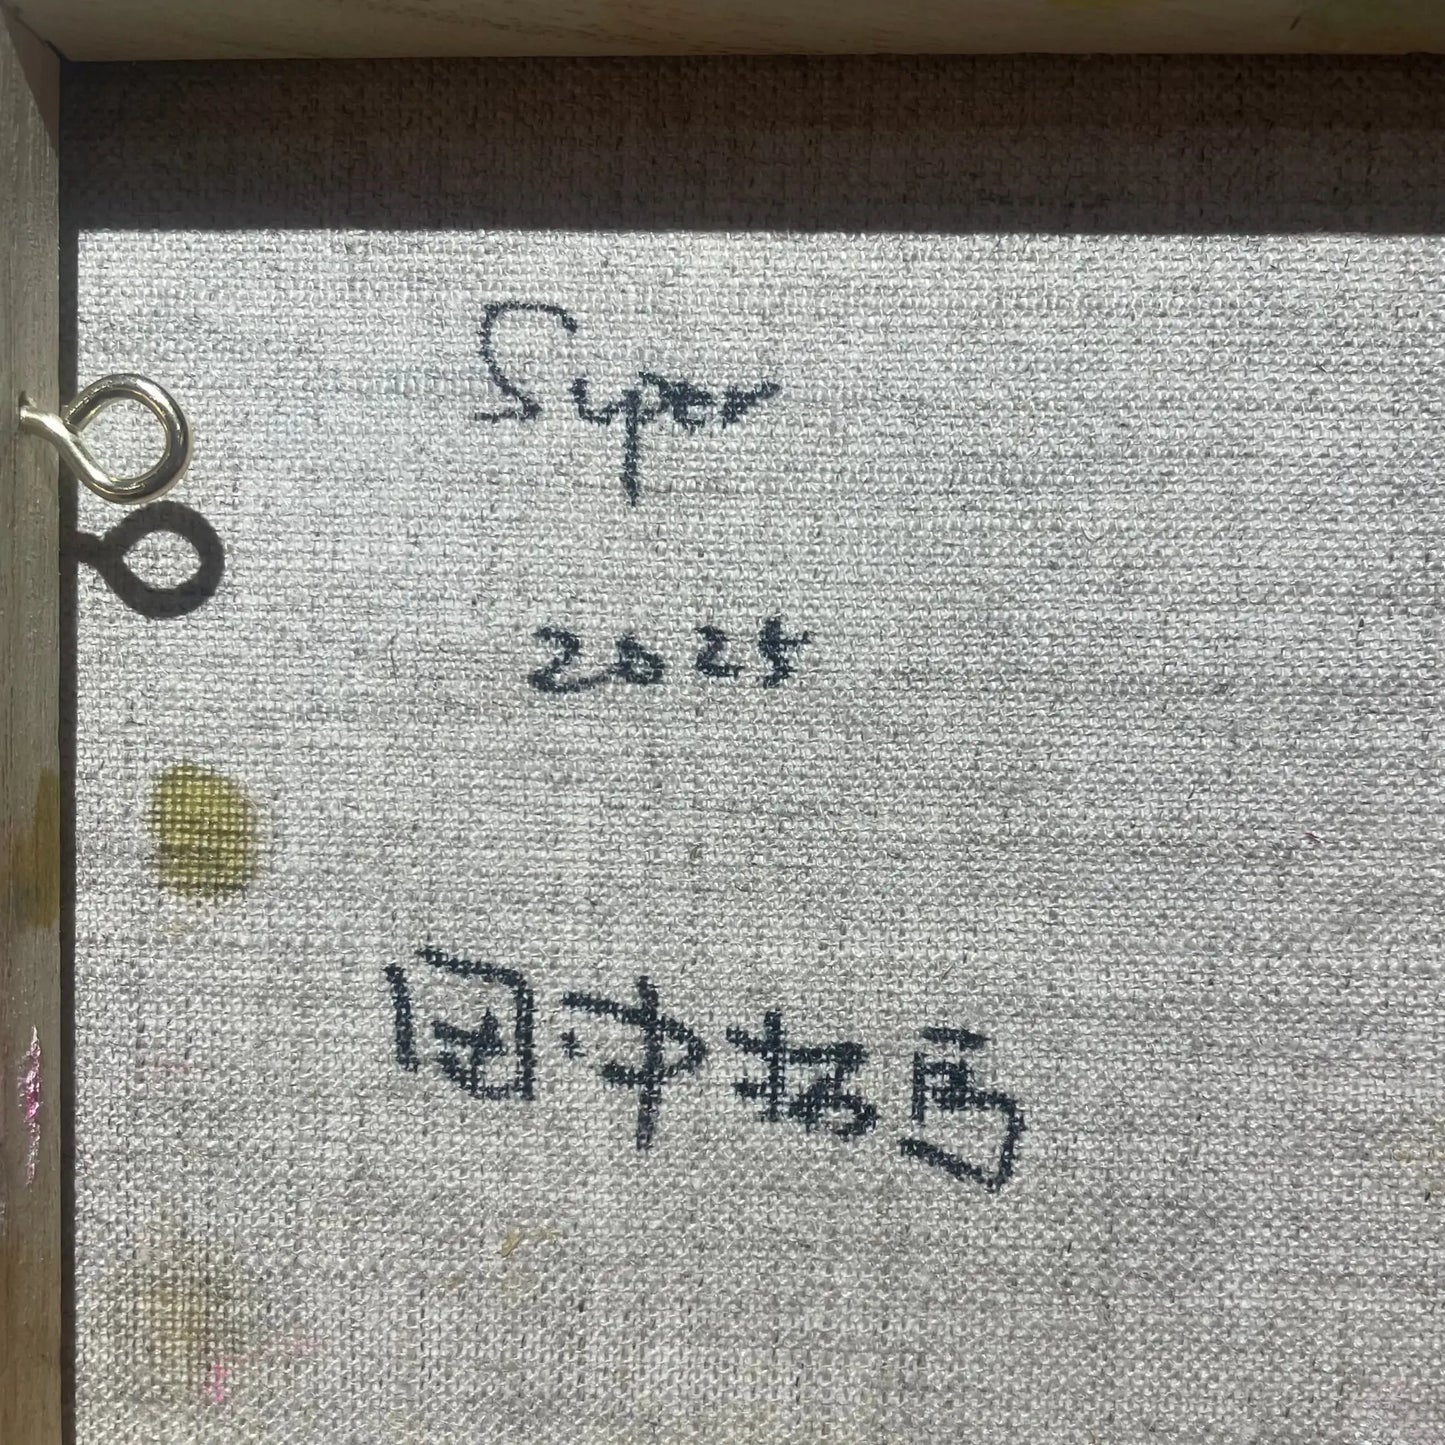 Super
2025
田中拓馬